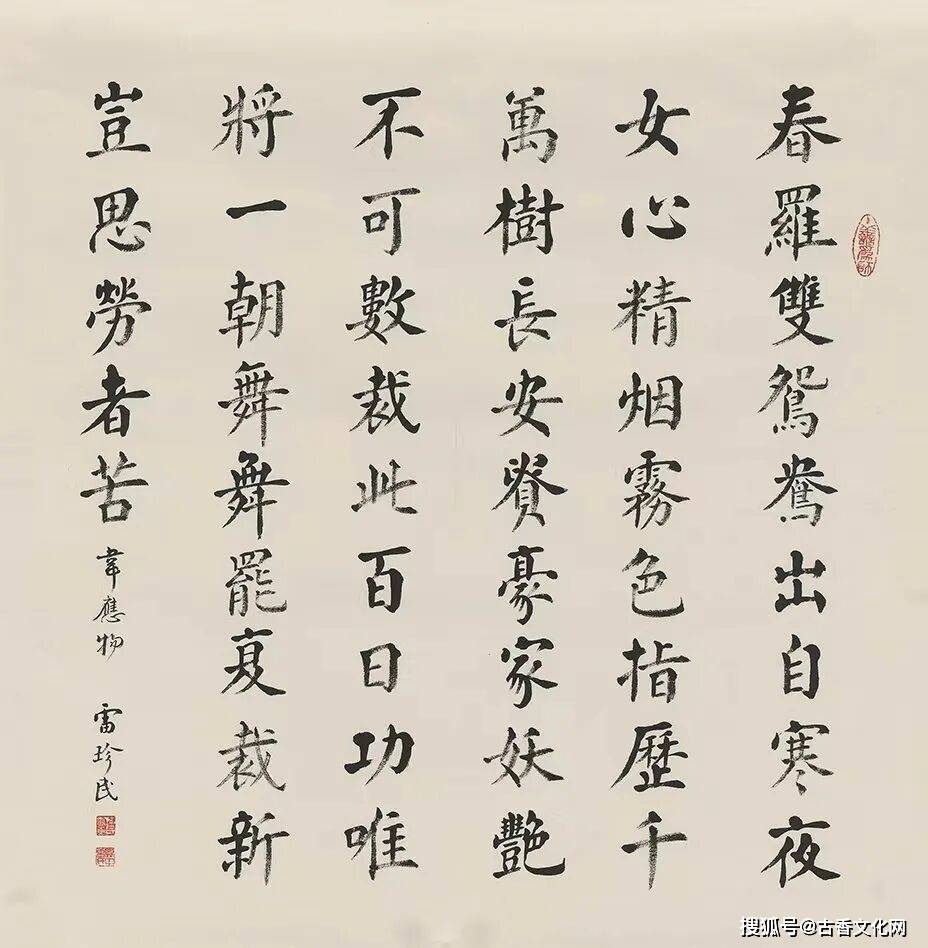 春羅雙鴛鴦出自寒夜
女心精烟霧色指歷千
萬樹長安貴豪家妖豔
不可數裁此百日功唯
將一朝舞舞罷复裁新
豈思勞者苦 韋應物 雷珍民
搜狐号@古香文化网